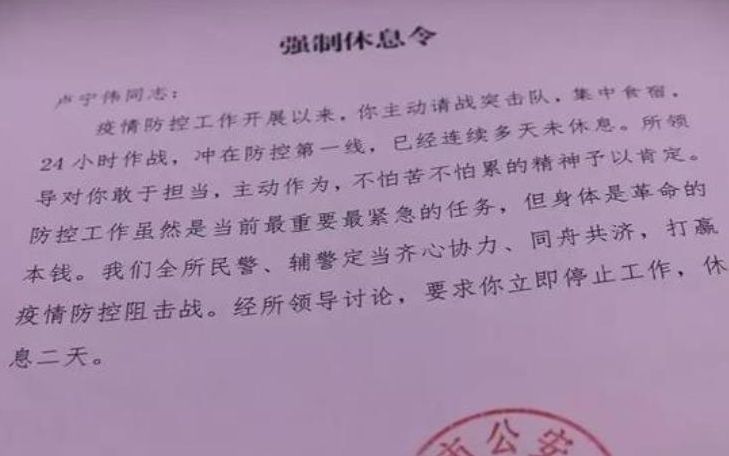 强制休息令
卢宁伟同志：
疫情防控工作开展以来，你主动请战突击队，集中食宿，
24小时作战，冲在防控第一线，已经连续多天未休息。所领
导对你敢于担当，主动作为，不怕苦不怕累的精神予以肯定。
防控工作虽然是当前最重要最紧急的任务，但身体是革命的
本钱。我们全所民警、辅警定当齐心协力、同舟共济，打赢
疫情防控阻击战。经所领导讨论，要求你立即停止工作，休
息二天。
市公安